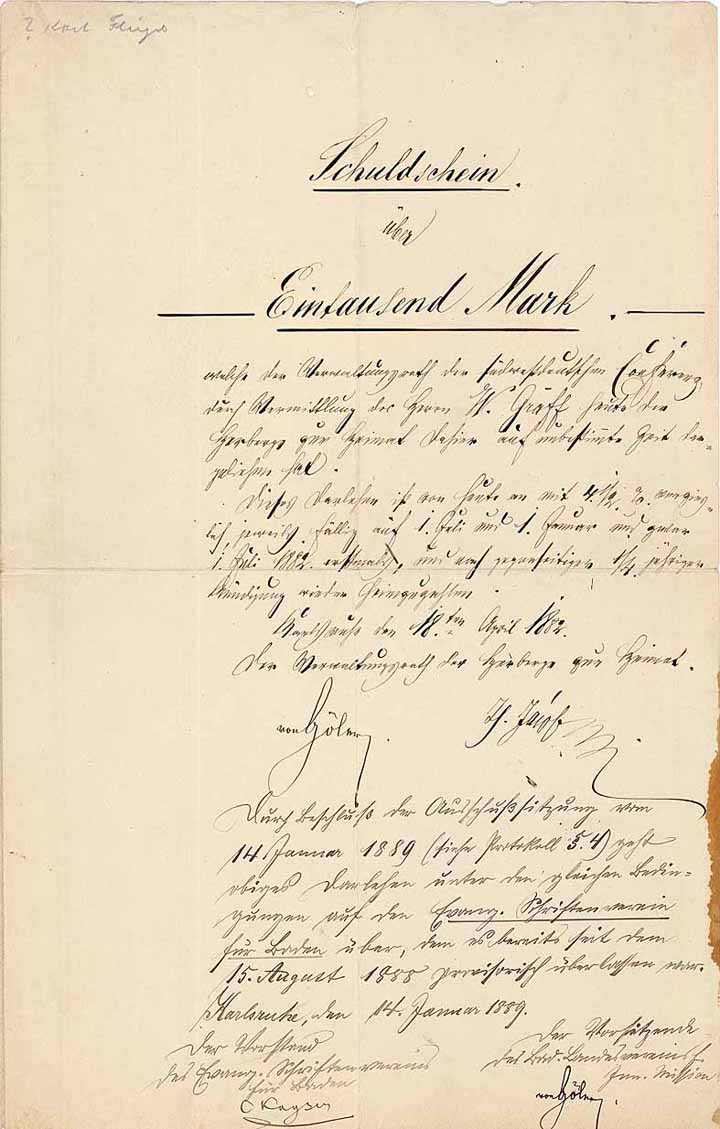 ? Karl
Schuldschein.
über
Eintausend Mark.
welche der Verwaltungsrath der südwestdeutschen Conferenz
durch Vermittlung des Herrn W. Gräff heute der
Herberge zur Heimat dahier auf unbestimmte Zeit dar-
geliehen hat.
Dieses Darlehen ist von heute an mit 4 1/2 % verzins-
lich, jeweils fällig auf 1. Juli und 1. Januar und zwar
1. Juli 1882 erstmals, und nach gegenseitiger 1/4 jähriger
Kündigung wieder heimzuzahlen.
Karlsruhe den 18.ten April 1882.
Der Verwaltungsrath der Herberge zur Heimat.
von Göler.
Durch Beschluß der Ausschußsitzung vom
14 Januar 1889 (siehe Protokoll §. 4) geht
obiges Darlehen unter den gleichen Bedin-
gungen auf den Evang. Schriftenverein
für Baden über, dem es bereits seit dem
15. August 1888 provisorisch überlassen war.
Karlsruhe, den 14. Januar 1889.
Der Vorstand
des Evang. Schriftenvereins
für Baden
Kayser
Der Vorsitzende
des Bad. Landesvereins f.
Inn. Mission
von Göler.